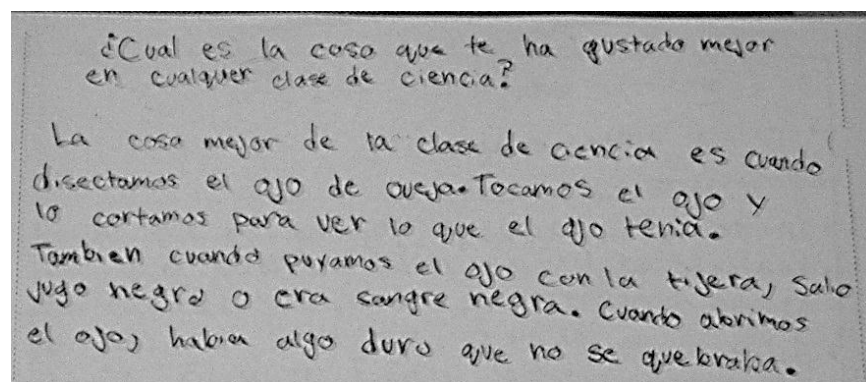 ¿Cual es la cosa que te ha gustado mejor
en cualquer clase de ciencia?
La cosa mejor de la clase de ciencia es cuando
disectamos el ojo de oveja. Tocamos el ojo y
lo cortamos para ver lo que el ojo tenia.
Tambien cuando puyamos el ojo con la tijera, salio
jugo negro o era sangre negra. Cuando abrimos
el ojo, habia algo duro que no se quebraba.